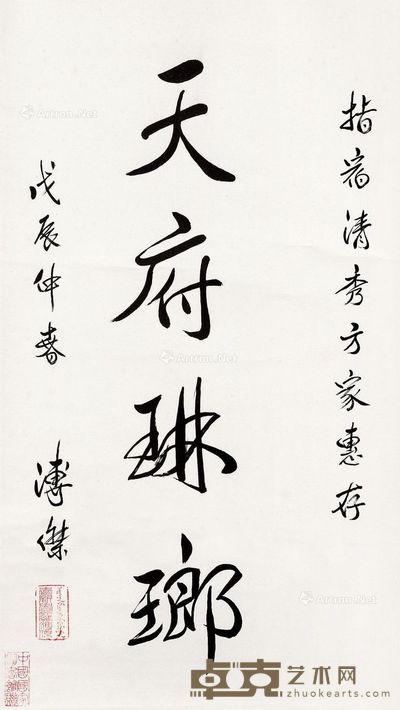 指宿清秀方家惠存
天府琳瑯
戊辰仲春
溥傑
Artron.Net
Artron.Net
Artron.Net
Artron.Net
卓克艺术网
zhuokearts.com